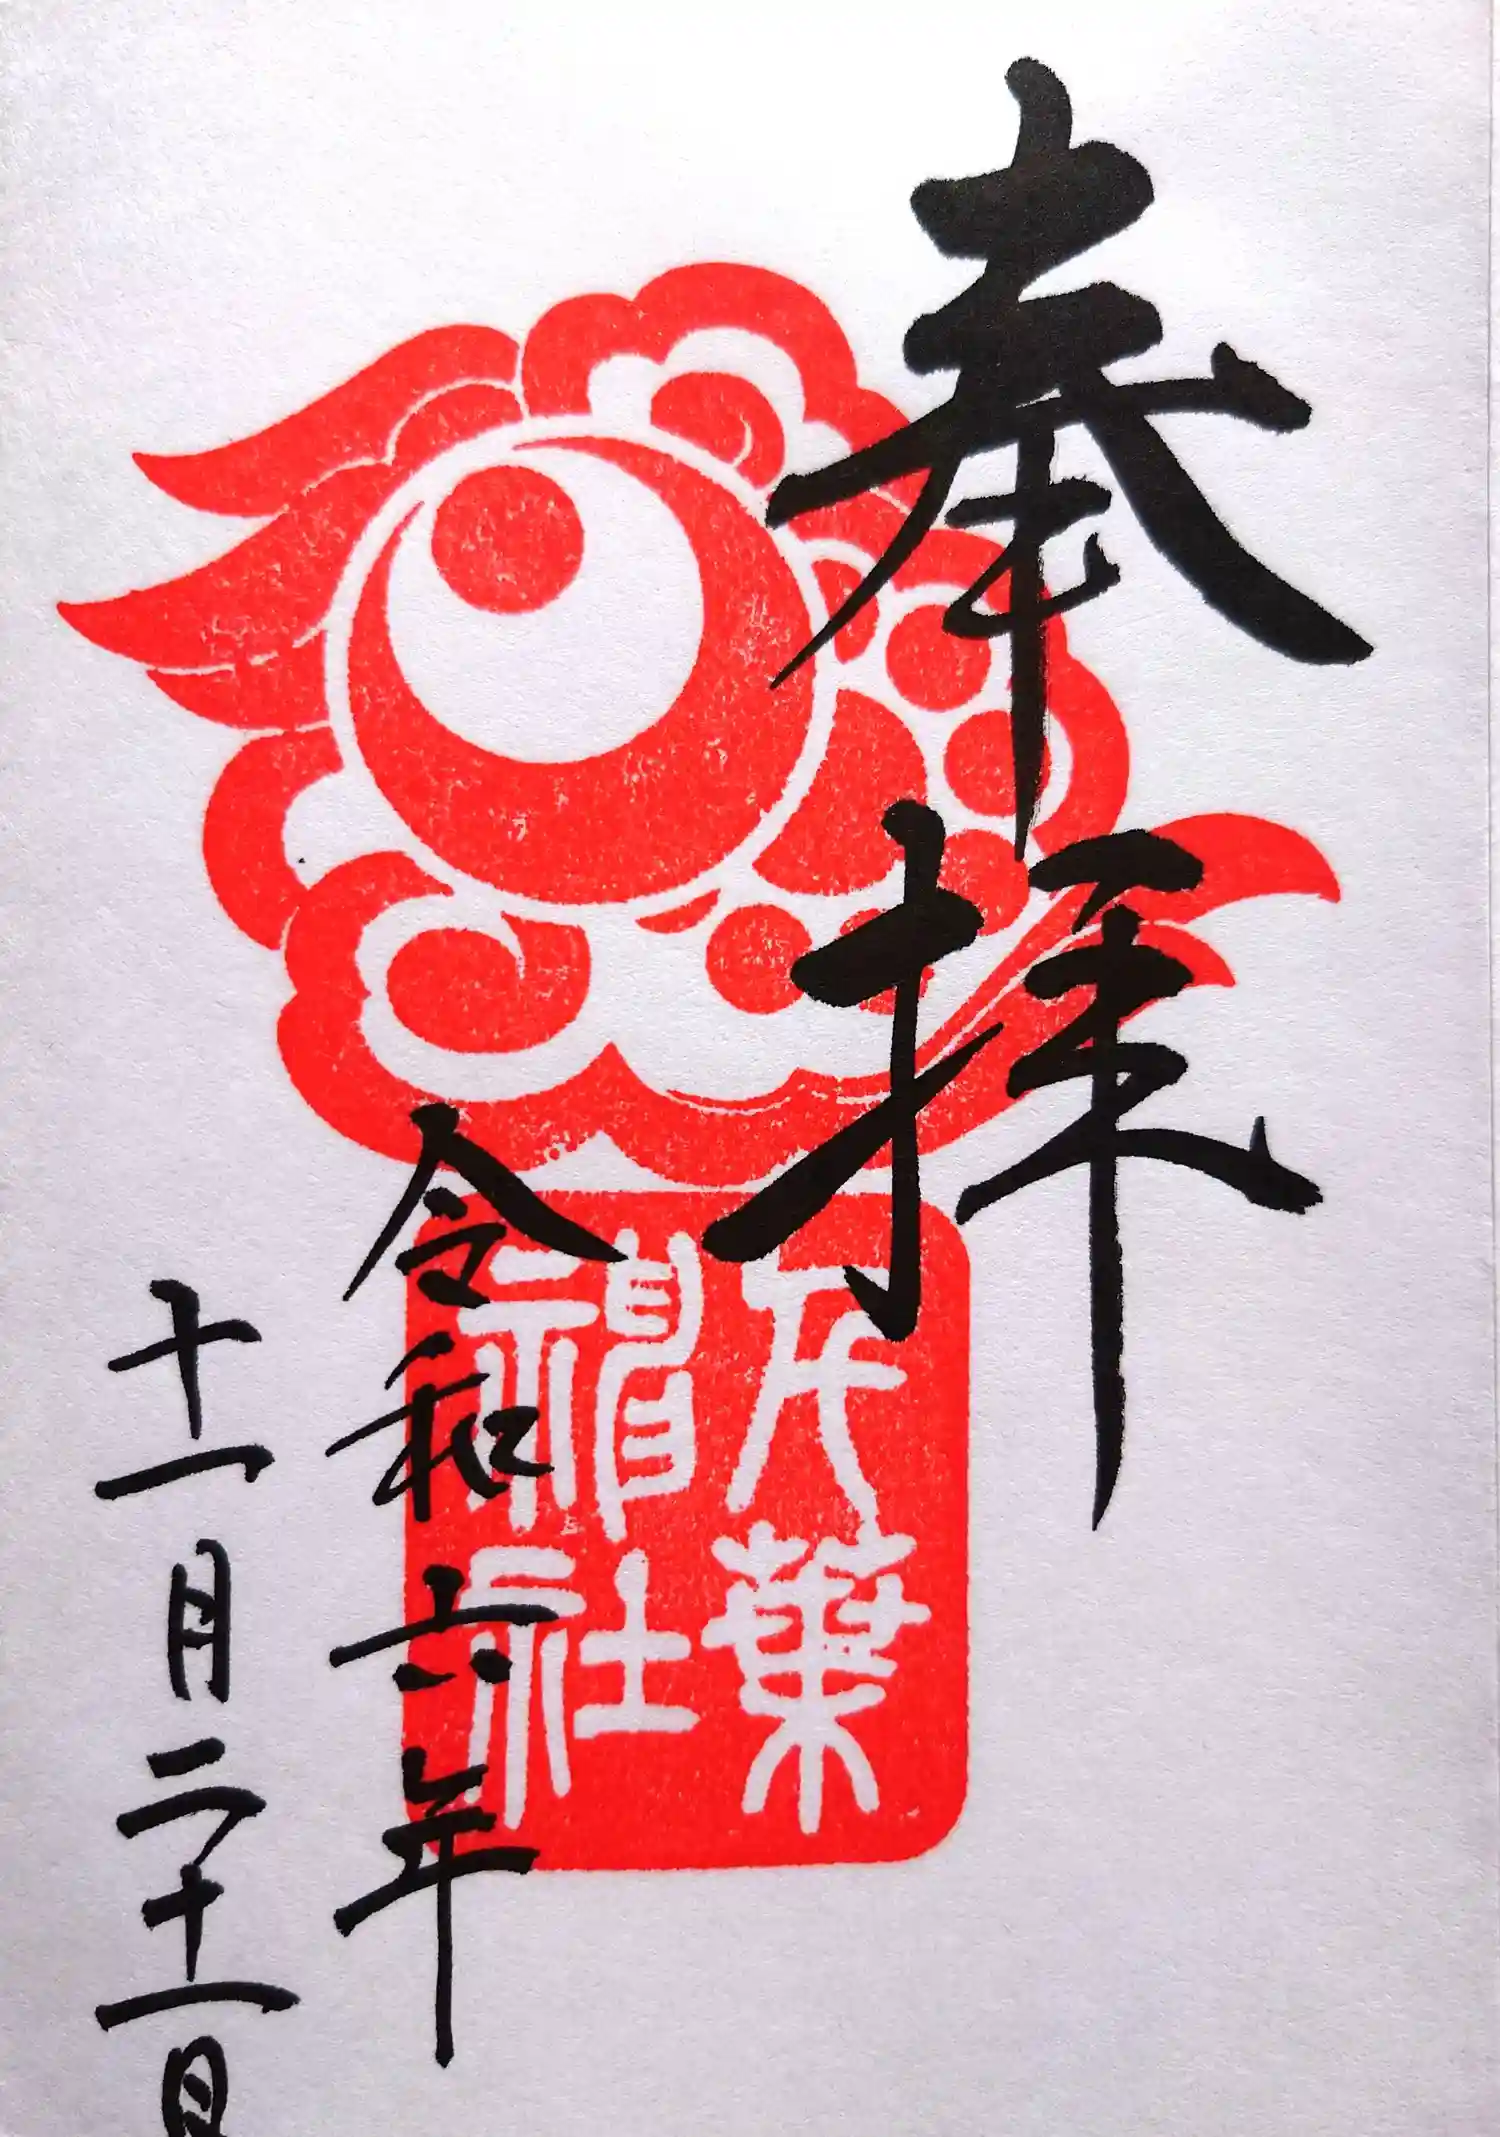 奉拝
千葉
神社
令和六年
十一月二十一日